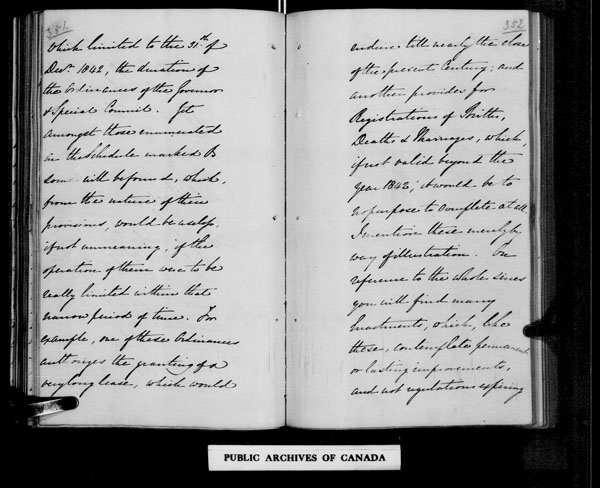 351.
which limited to the 31st of
Decr. 1842, the duration of
the Ordinances of the Governor
& Special Council. Yet
amongst those enumerated
in the Schedule marked B
some will be found, which,
from the nature of their
provisions, would be useless,
if not unmeaning, if the
operation of them were to be
really limited within that
narrow period of time. For
example, one of these Ordinances
authorizes the granting of a
very long lease, which would
352
endure till nearly the close
of the present Century; and
another provides for
Registrations of Births,
Deaths & Marriages, which,
if not valid beyond the
year 1842, it would be to
no purpose to complete at all.
I mention these merely by
way of illustration. On
reference to the whole series
you will find many
Enactments, which, like
these, contemplate permanent
or lasting improvements,
and not regulations expiring
PUBLIC ARCHIVES OF CANADA